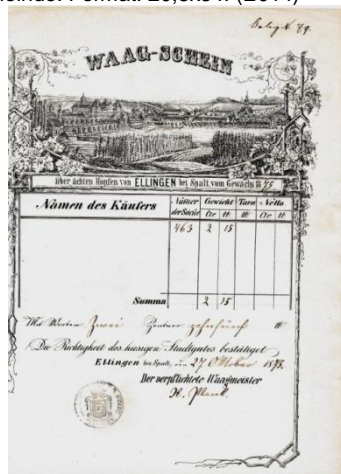 Beleg № 79.
WAAG-SCHEIN
über ächten Hopfen von ELLINGEN bei Spalt vom Gewächs 18
Namen des Käufers
Numer der Säcke
Gewicht
Tara
Netto
Ctr. ℔
℔
Ctr. ℔
463 2 15
Summa 2 15
Mit Worten Zwei Zentner zehnfünf ℔
Die Richtigkeit des hiesigen Stadtgutes bestätiget
Ellingen bei Spalt, den 27 Oktober 1875.
Der verpflichtete Waagmeister